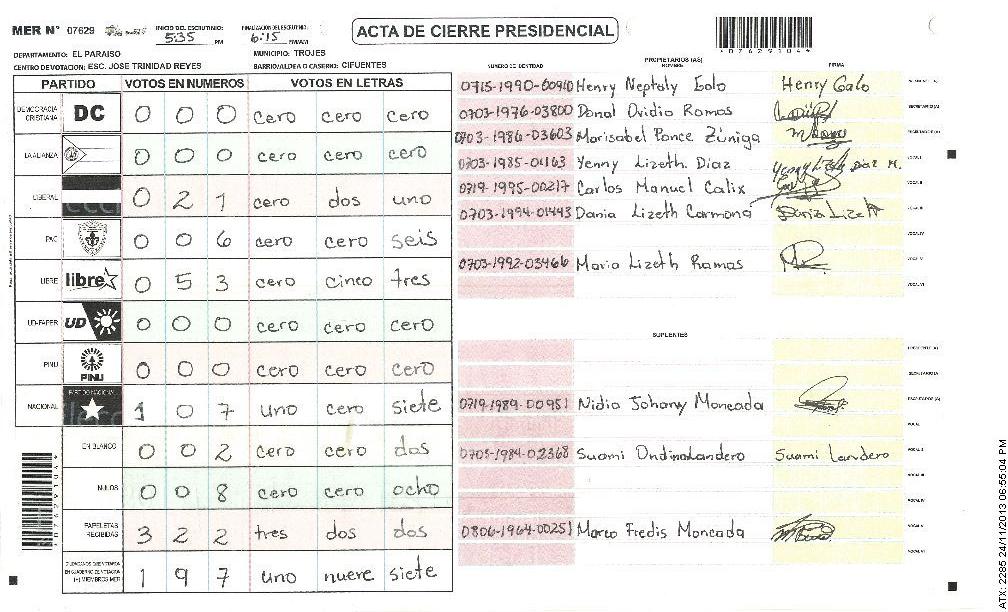 MER Nº 07629
INICIO DEL ESCRUTINIO: 5:35 PM
FINALIZACION DEL ESCRUTINIO: 6:15 PM/AM
ACTA DE CIERRE PRESIDENCIAL
DEPARTAMENTO: EL PARAISO
MUNICIPIO: TROJES
CENTRO DE VOTACION: ESC. JOSE TRINIDAD REYES
BARRIO/ALDEA O CASERIO: CIFUENTES
PARTIDO VOTOS EN NUMEROS VOTOS EN LETRAS
DEMOCRACIA CRISTIANA DC 0 0 0 cero cero cero
LA ALIANZA 0 0 0 cero cero cero
LIBERAL 0 2 1 cero dos uno
PAC 0 0 6 cero cero seis
LIBRE libre 0 5 3 cero cinco tres
UD-FAPER UD 0 0 0 cero cero cero
PINU PINU 0 0 0 cero cero cero
NACIONAL PARTIDO NACIONAL 1 0 7 uno cero siete
EN BLANCO 0 0 2 cero cero dos
NULOS 0 0 8 cero cero ocho
PAPELETAS RECIBIDAS 3 2 2 tres dos dos
(+) MIEMBROS MER 1 9 7 uno nueve siete
*07629104*
PROPIETARIOS (AS)
NUMERO DE IDENTIDAD NOMBRE FIRMA
0715-1990-00910 Henry Neptaly Galo Henry Galo
0703-1976-03800 Donal Ovidio Ramos SECRETARIO (A)
0703-1986-03603 Marisabel Ponce Zúniga ESCRUTADOR (A)
0703-1985-01163 Yenny Lizeth Diaz Yenny Lizeth Diaz M. VOCAL I
0719-1995-00217 Carlos Manuel Calix VOCAL II
0703-1994-01443 Dania Lizeth Carmona Dania Lizeth VOCAL III
VOCAL IV
0703-1992-03466 Maria Lizeth Ramos VOCAL V
VOCAL VI
SUPLENTES
PRESIDENTE (A)
SECRETARIO (A)
0719-1989-00951 Nidia Johany Moncada ESCRUTADOR (A)
VOCAL I
0703-1984-02368 Suami Ondina Landero Suami Landero VOCAL II
VOCAL III
VOCAL IV
0806-1964-00251 Marco Fredis Moncada VOCAL V
VOCAL VI
ATX: 2285 24/11/2013 06:55:04 PM